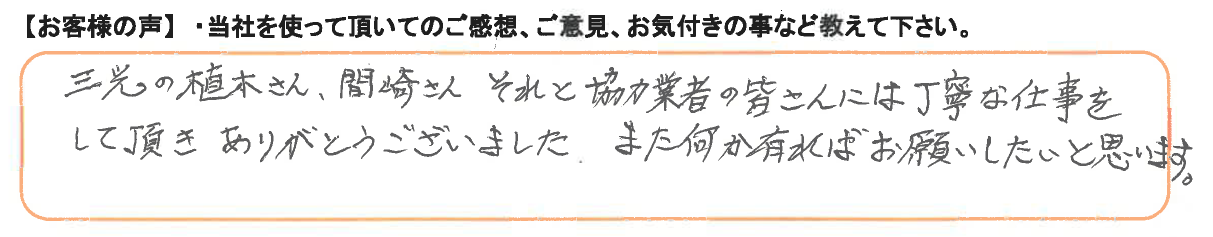 【お客様の声】・当社を使って頂いてのご感想、ご意見、お気付きの事など教えて下さい。
三光の植木さん、間崎さん それと協力業者の皆さんには丁寧な仕事を
して頂き ありがとうございました. また何か有ればお願いしたいと思います。